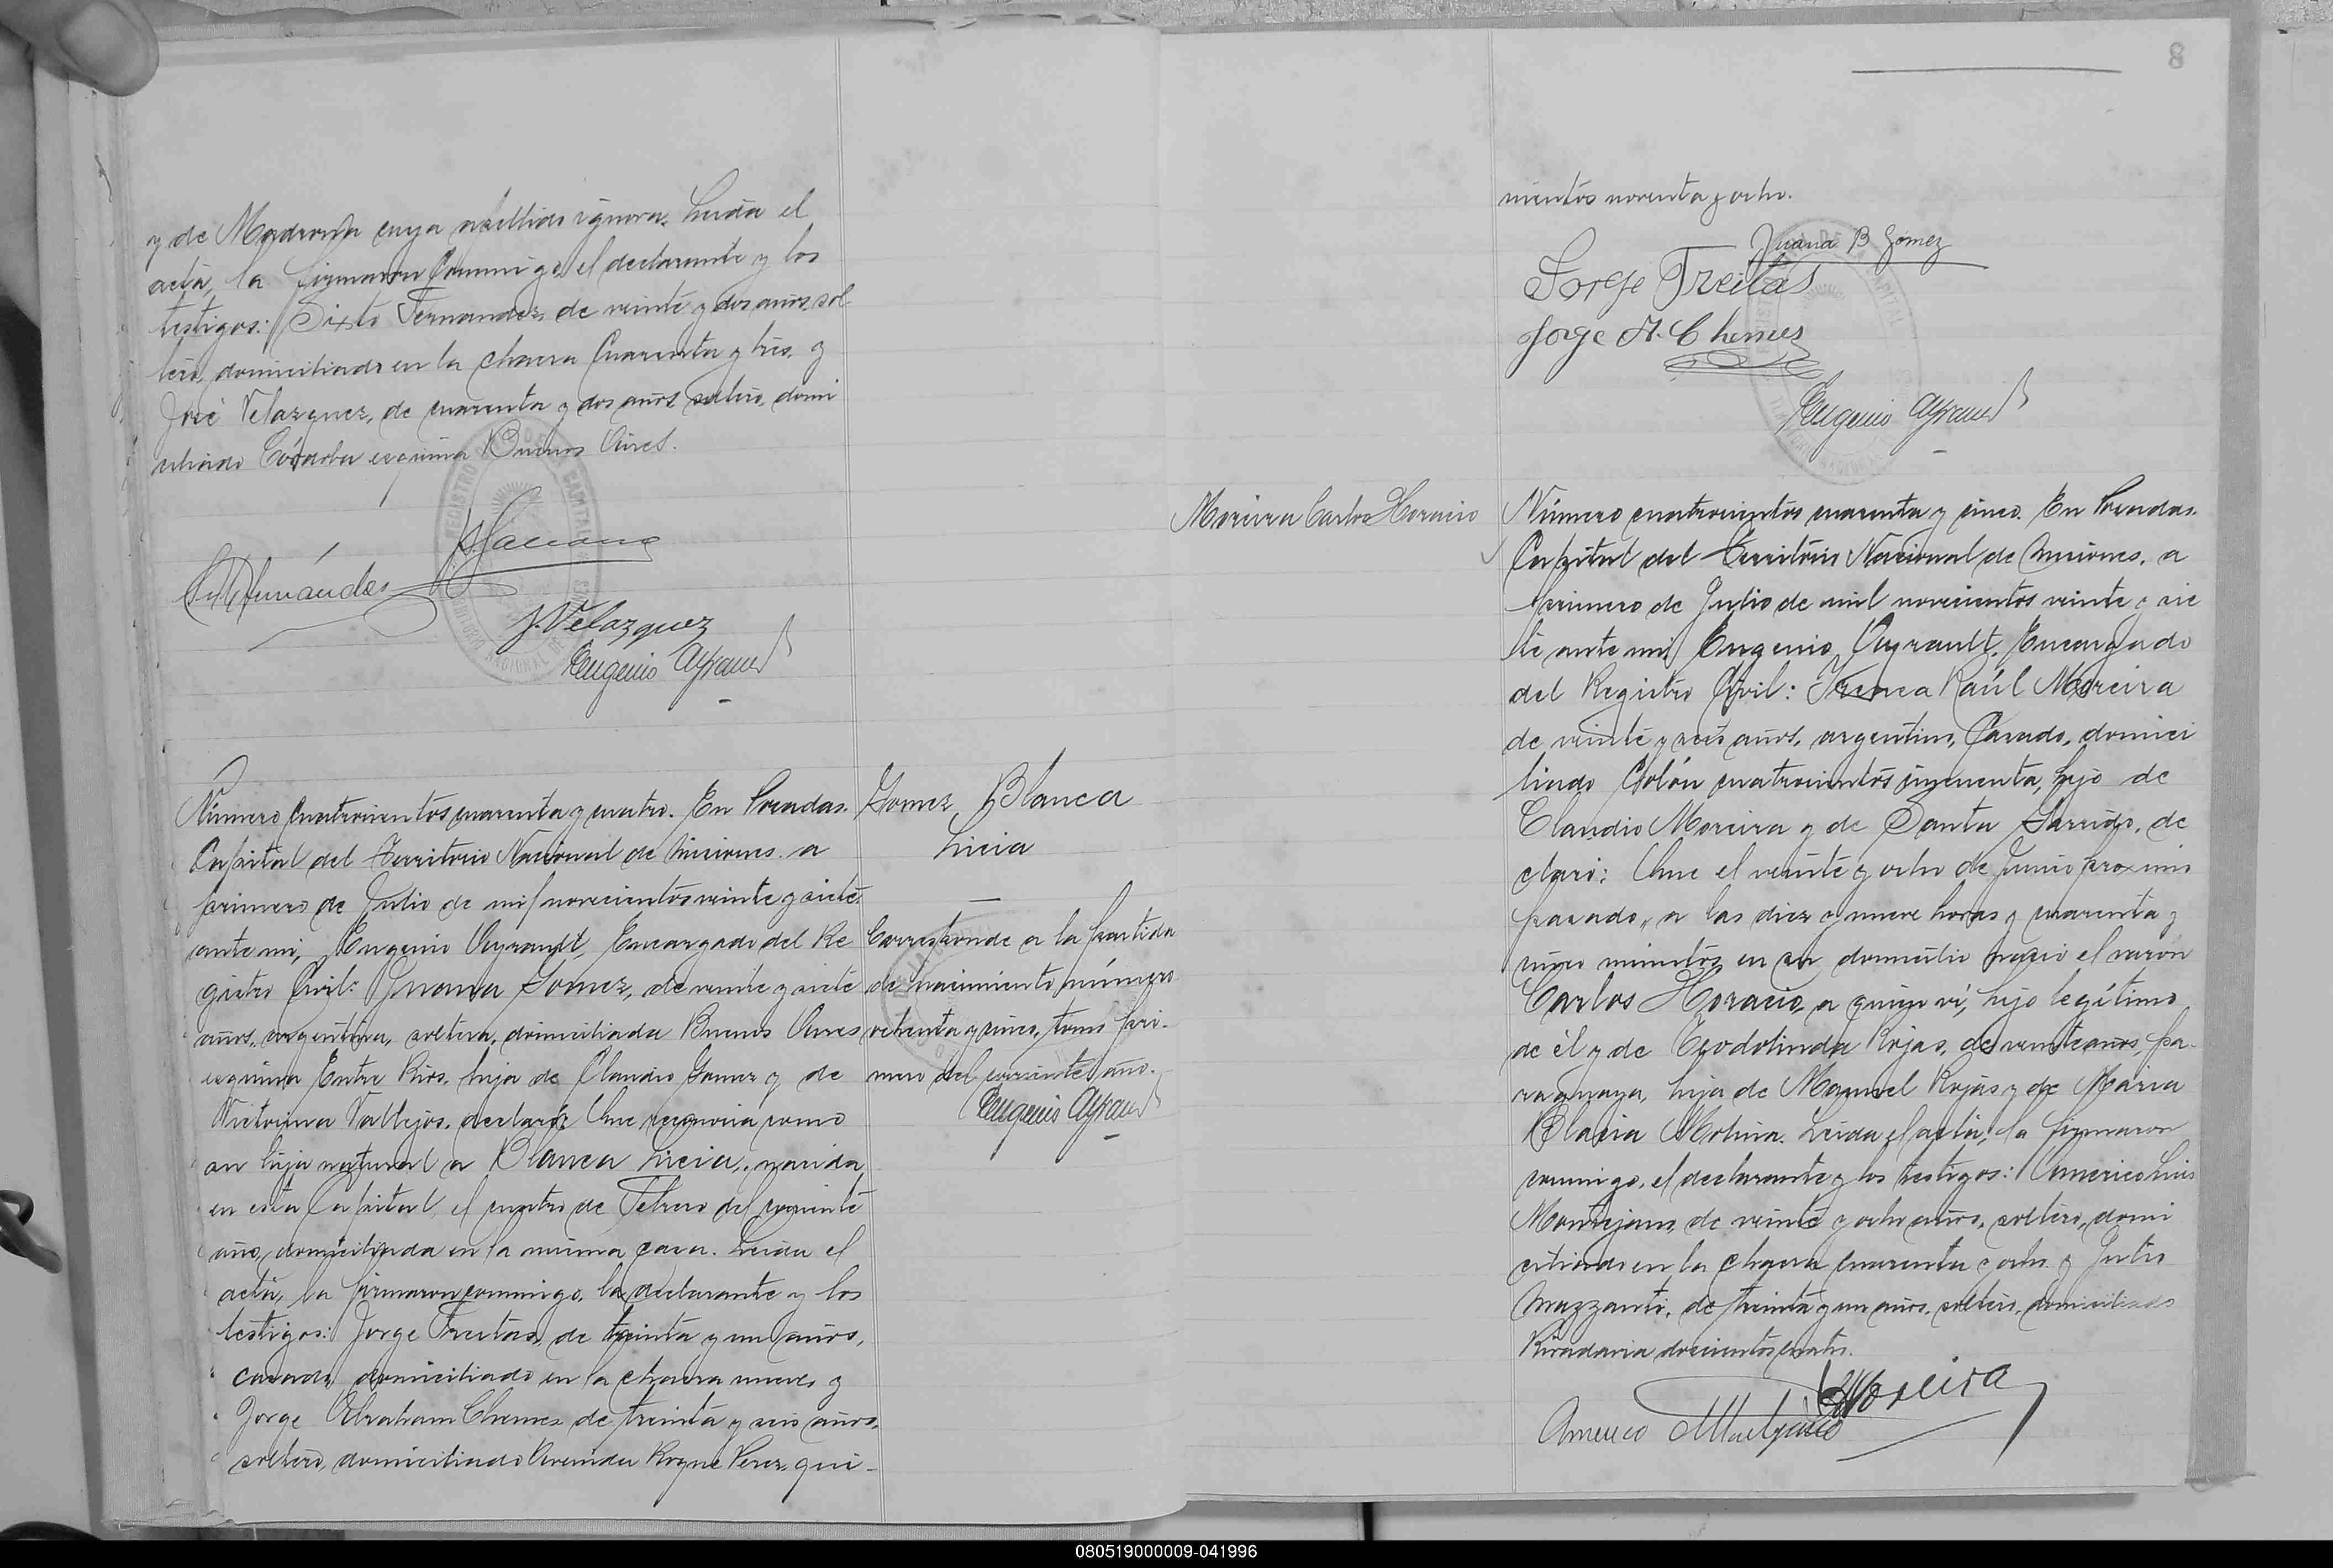 y de Madrona cuya apellido ignora. Leída el
acta, la firmaron conmigo, el declarante y los
testigos: Sixto Fernandez, de veinte y dos años, sol
tero, domiciliado en la chacra cuarenta y tres, y
José Velazquez, de cuarenta y dos años, soltero, domi
ciliado Córdoba esquina Buenos Aires.
J. Velazquez
Eugenio Ayrault
Número cuatrocientos cuarenta y cuatro. En Posadas.
Capital del Territorio Nacional de Misiones, a
primero de Julio de mil novecientos veinte y siete,
ante mi, Eugenio Ayrault, Encargado del Re
gistro Civil: Juana Gomez, de veinte y siete
años, argentina, soltera, domiciliada Buenos Aires
esquina Entre Rios, hija de Claudio Gomez y de
Victorina Vallejos, declaró: Que reconocia como
su hija natural a Blanca Lucia, nacida
en esta Capital, el cuatro de Febrero del corriente
año, domiciliada en la misma casa. Leida el
acta, la firmaron conmigo, la declarante y los
testigos: Jorge Freitas, de treinta y un años,
casado, domiciliado en la chacra nueve, y
Jorge Abraham Chemes de treinta y seis años,
soltero, domiciliado Avenida Roque Perez, qui-
Gomez Blanca
Lucia
Corresponde a la partida
de nacimiento número
ochenta y cinco, tomo pri-
mero del corriente año.
Eugenio Ayrault
8
nientos noventa y ocho.
Juana B Gómez
Jorge Freitas
Jorge A. Chemes
Eugenio Ayrault
Moreira Carlos Horacio
Número cuatrocientos cuarenta y cinco. En Posadas.
Capital del Territorio Nacional de Misiones, a
primero de Julio de mil novecientos veinte y sie
te ante mi, Eugenio Ayrault, Encargado
del Registro Civil: Raúl Moreira
de veinte y seis años, argentino, Casado, domici
liado Colón cuatrocientos cincuenta, hijo de
Claudio Moreira y de Santa Garrido, de
claró: Que el veinte y ocho de Junio proximo
pasado, a las diez y nueve horas y cuarenta y
cinco minutos, en su domicilio nació el varon
Carlos Horacio, a quien vi, hijo legítimo
de él y de Teodolinda Rojas, de veinte años, pa-
raguaya, hija de Manuel Rojas y de Maria
Blasia Molina. Leida el acta, la firmaron
conmigo, el declarante y los testigos: Americo Luis
de veinte y ocho años, soltero, domi
ciliado en la chacra cuarenta y ocho y Julio
Mazzanti, de treinta y un años, soltero, domiciliado
Rivadavia doscientos cuatro.
Moreira
Americo
080519000009-041996